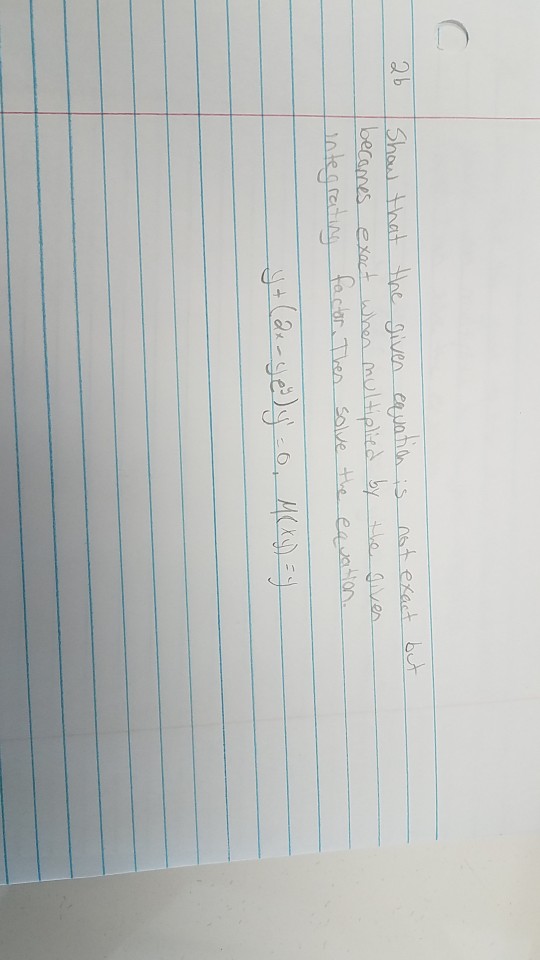 2b Show that the given equation is not exact but
becomes exact when multiplied by the given
integrating factor. Then solve the equation.
y + (2x - ye^y) y' = 0, M(xy) = y